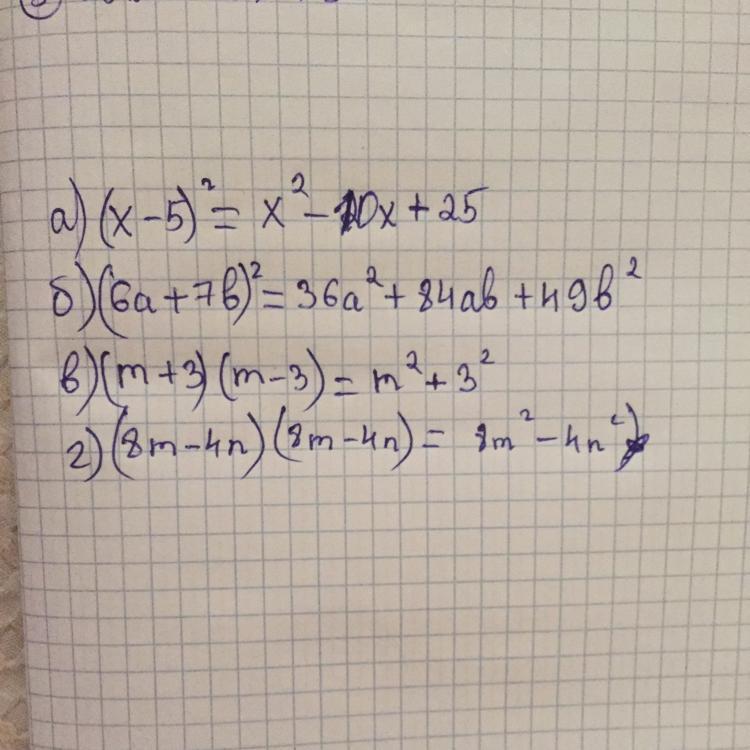 а) (x-5)² = x² - 10x + 25
б) (6a+7b)² = 36a² + 84ab + 49b²
в) (m+3) (m-3) = m² + 3²
г) (8m-4n) (8m-4n) = 8m² - 4n²